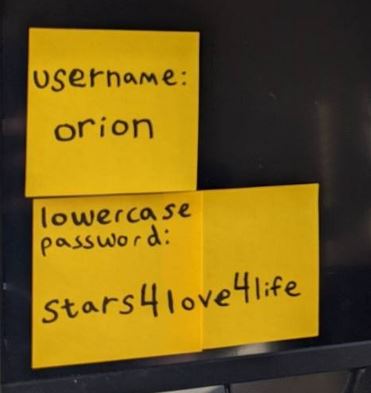 username:
orion
lowercase
password:
stars4love4life